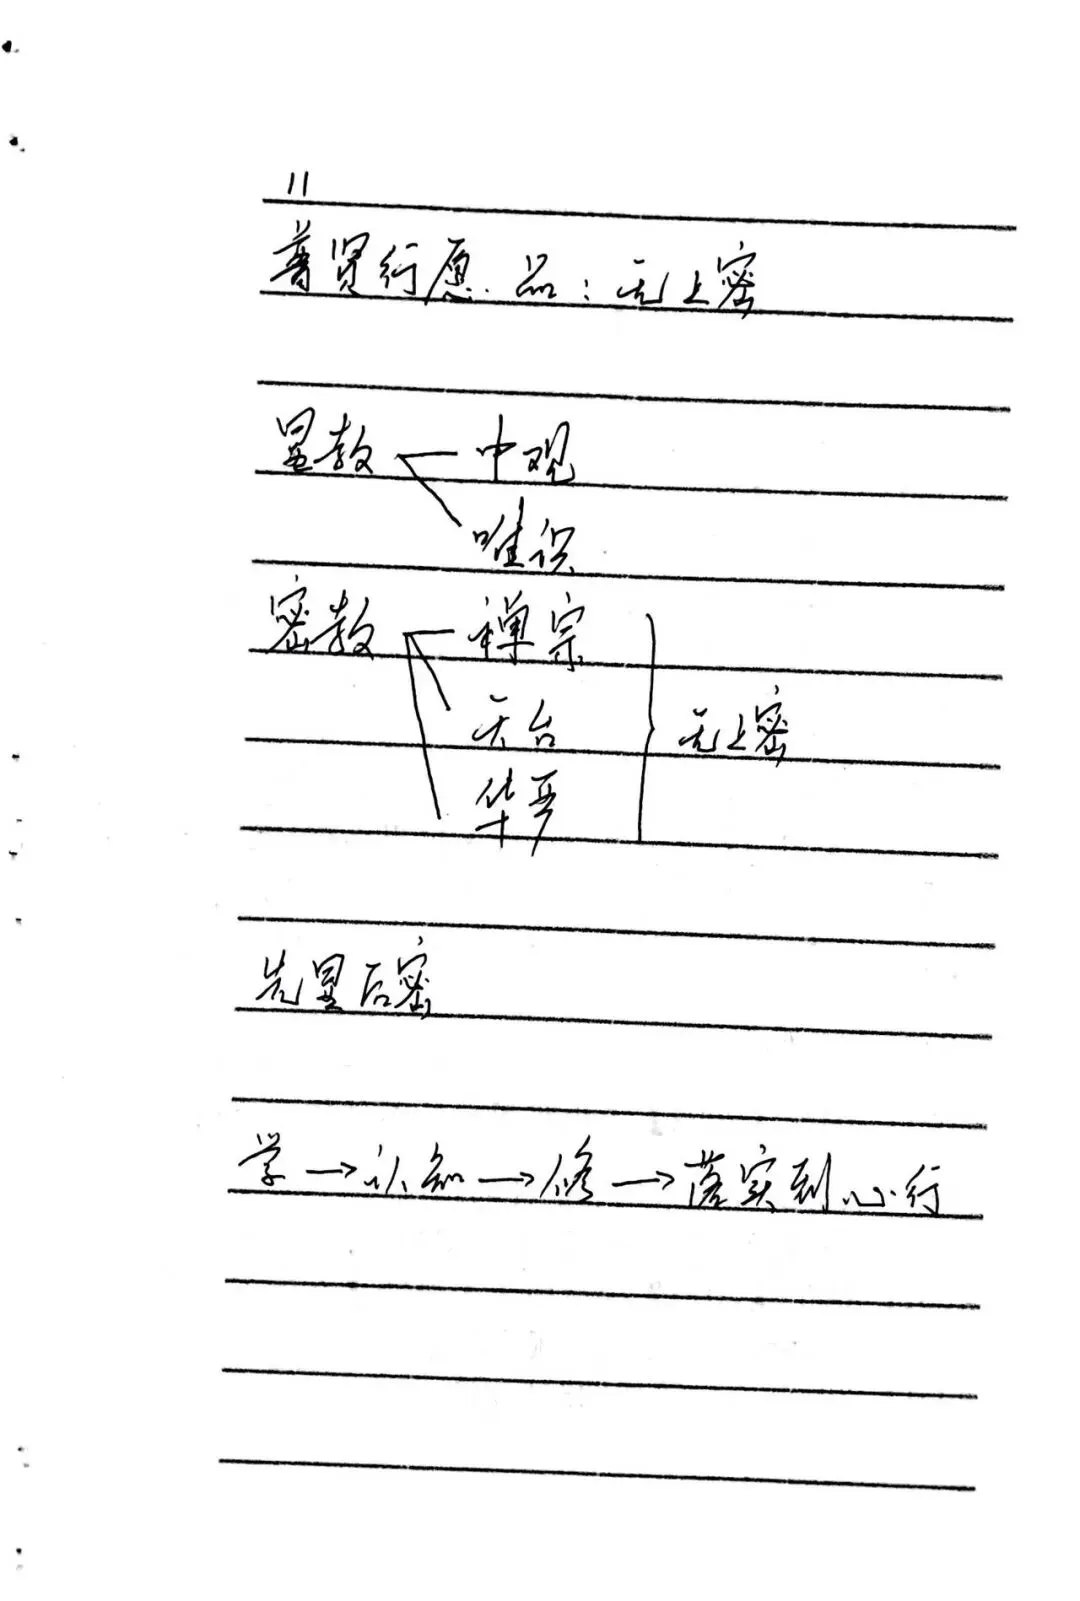 11
普贤行愿品：无上密
显教 中观
唯识
密教 禅宗
天台 无上密
华严
先显后密
学→认知→修→落实到心行